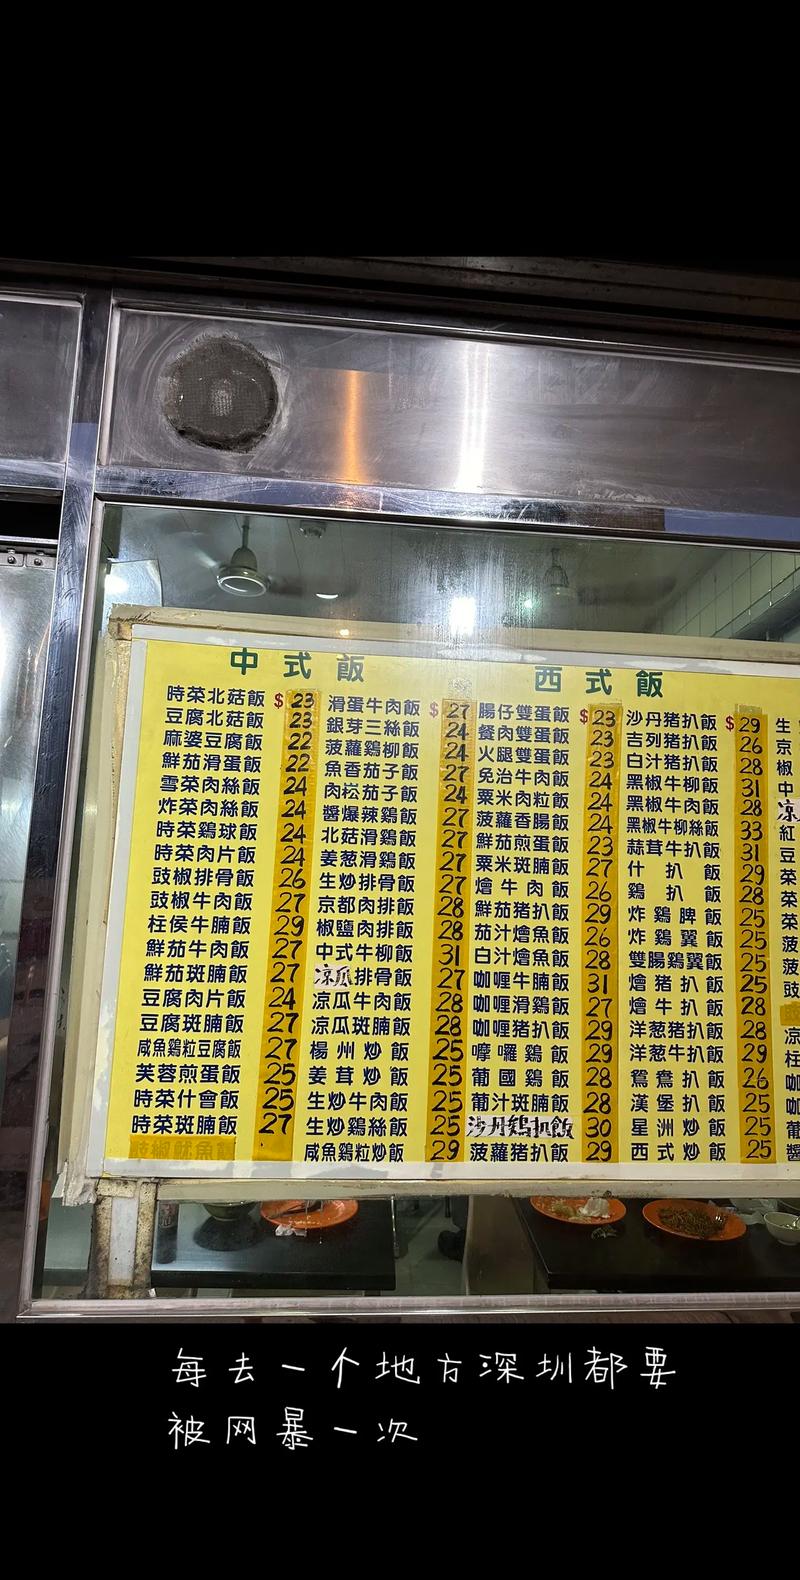 中式飯
時菜北菇飯 $23
豆腐北菇飯 23
麻婆豆腐飯 22
鮮茄滑蛋飯 22
雪菜肉絲飯 24
炸菜肉絲飯 24
時菜鷄球飯 24
時菜肉片飯 24
豉椒排骨飯 26
豉椒牛肉飯 27
柱侯牛腩飯 29
鮮茄牛肉飯 27
鮮茄斑腩飯 27
豆腐肉片飯 24
豆腐斑腩飯 27
咸魚鷄粒豆腐飯 27
芙蓉煎蛋飯 25
時菜什會飯 25
時菜斑腩飯 27
豉椒魷魚飯
滑蛋牛肉飯 $27
銀芽三絲飯 24
菠蘿鷄柳飯 24
魚香茄子飯 27
肉松茄子飯 24
醬爆辣鷄飯 27
北菇滑鷄飯 27
姜葱滑鷄飯 27
生炒排骨飯 27
京都肉排飯 28
椒鹽肉排飯 28
中式牛柳飯 31
凉瓜排骨飯 27
凉瓜牛肉飯 28
凉瓜斑腩飯 28
楊州炒飯 25
姜茸炒飯 25
生炒牛肉飯 25
生炒鷄絲飯 25
咸魚鷄粒炒飯 29
西式飯
腸仔雙蛋飯 $23
餐肉雙蛋飯 23
火腿雙蛋飯 23
免治牛肉飯 24
粟米肉粒飯 24
菠蘿香腸飯 24
鮮茄煎蛋飯 23
粟米斑腩飯 27
燴牛肉飯 26
鮮茄猪扒飯 29
茄汁燴魚飯 26
白汁燴魚飯 28
咖喱牛腩飯 31
咖喱滑鷄飯 27
咖喱猪扒飯 29
嚤囉鷄飯 29
葡國鷄飯 28
葡汁斑腩飯 28
沙丹鷄扒飯 30
菠蘿猪扒飯 29
沙丹猪扒飯 $29
吉列猪扒飯 26
白汁猪扒飯 28
黑椒牛柳飯 31
黑椒牛肉飯 28
黑椒牛柳絲飯 33
蒜茸牛扒飯 31
什扒飯 29
鷄扒飯 28
炸鷄脾飯 25
炸鷄翼飯 25
雙腸鷄翼飯 25
燴猪扒飯 25
燴牛扒飯 28
洋葱猪扒飯 28
洋葱牛扒飯 29
鴛鴦扒飯 26
漢堡扒飯 25
星洲炒飯 25
西式炒飯 25
生
京
椒
中
凉
紅
豆
菜
菜
菠
菠
豉
凉
柱
咖
咖
葡
醬
每去一个地方深圳都要
被网暴一次